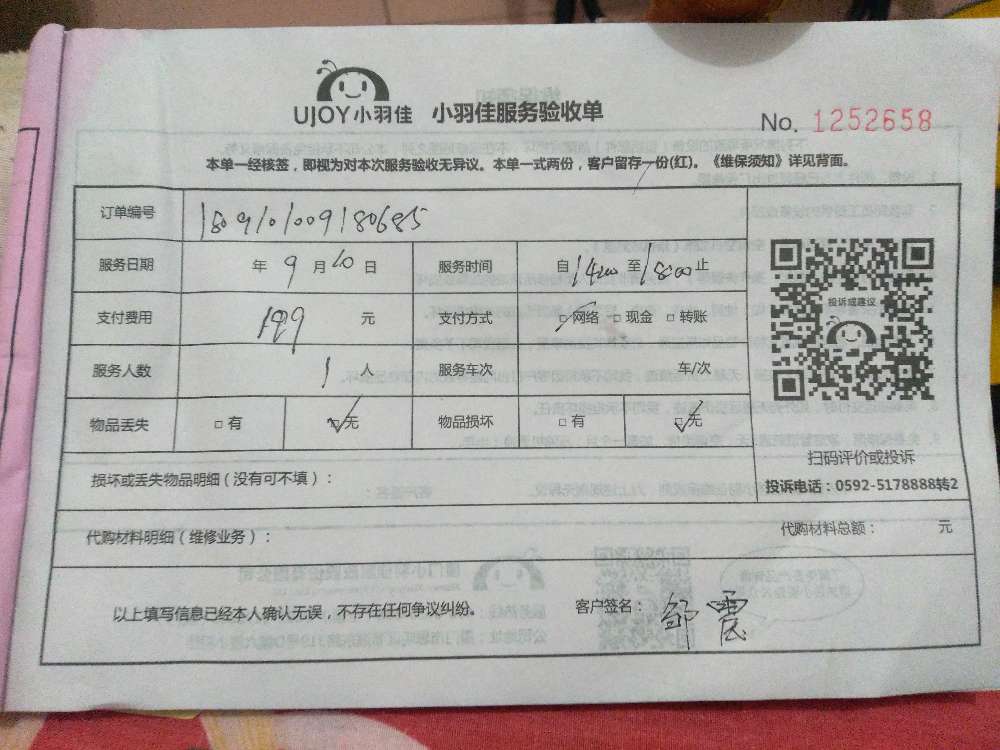 UJOY小羽佳 小羽佳服务验收单
No. 1252658
本单一经核签，即视为对本次服务验收无异议。本单一式两份，客户留存一份(红)。《维保须知》详见背面。
订单编号 1809101009180685
服务日期 年 9 月 10 日 服务时间 自 1400 至 1800 止
支付费用 199 元 支付方式 □网络 □现金 □转账
服务人数 1 人 服务车次 车/次
物品丢失 □有 □无 物品损坏 □有 □无
投诉或建议
扫码评价或投诉
投诉电话：0592-5178888转2
损坏或丢失物品明细（没有可不填）：
代购材料明细（维修业务）： 代购材料总额： 元
以上填写信息已经本人确认无误，不存在任何争议纠纷。 客户签名：邹震